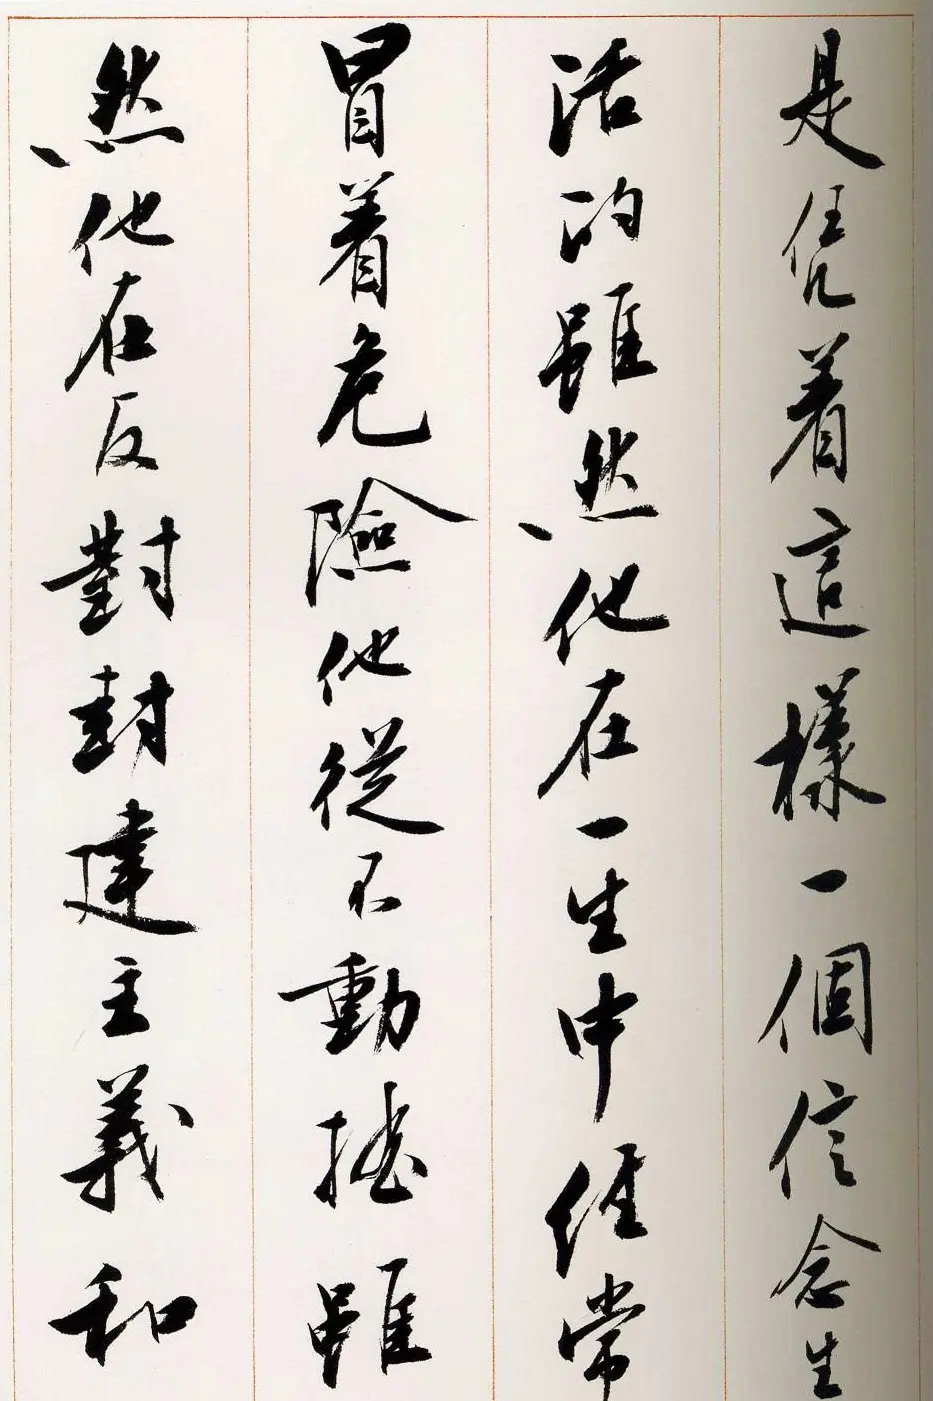 是凭着這樣一個信念生
活的雖然他在一生中經常
冒着危險他從不動摇雖
然他在反對封建主義和